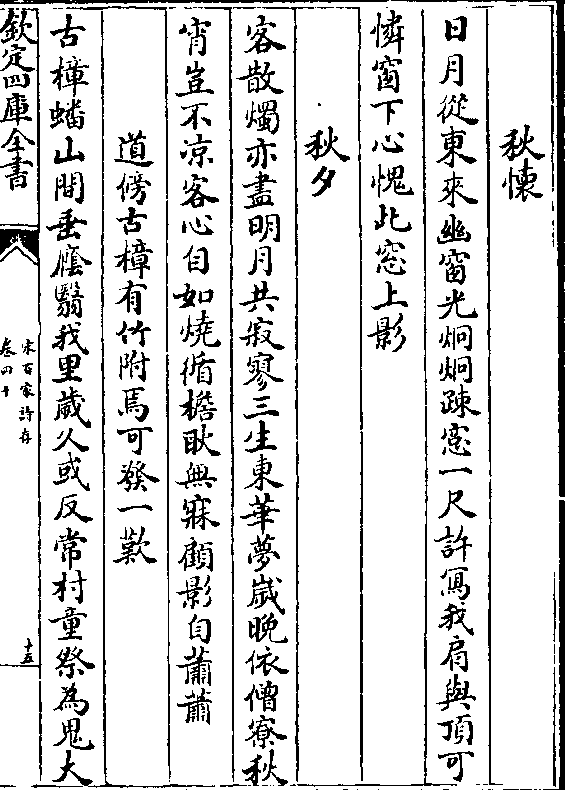 秋懷
日月從東來幽窗光炯炯疎窓一尺許寫我肩與頂可
憐窗下心愧此窓上影
秋夕
客散燭亦盡明月共寂寥三生東華夢歲晚依僧寮秋
宵豈不凉客心自如燒循檐耿無寐顧影自蕭蕭
道傍古樟有竹附焉可發一歎
古樟蟠山間垂廕翳我里歲久或反常村童祭為鬼大
欽定四庫全書
宋百家詩存
卷四十
十五